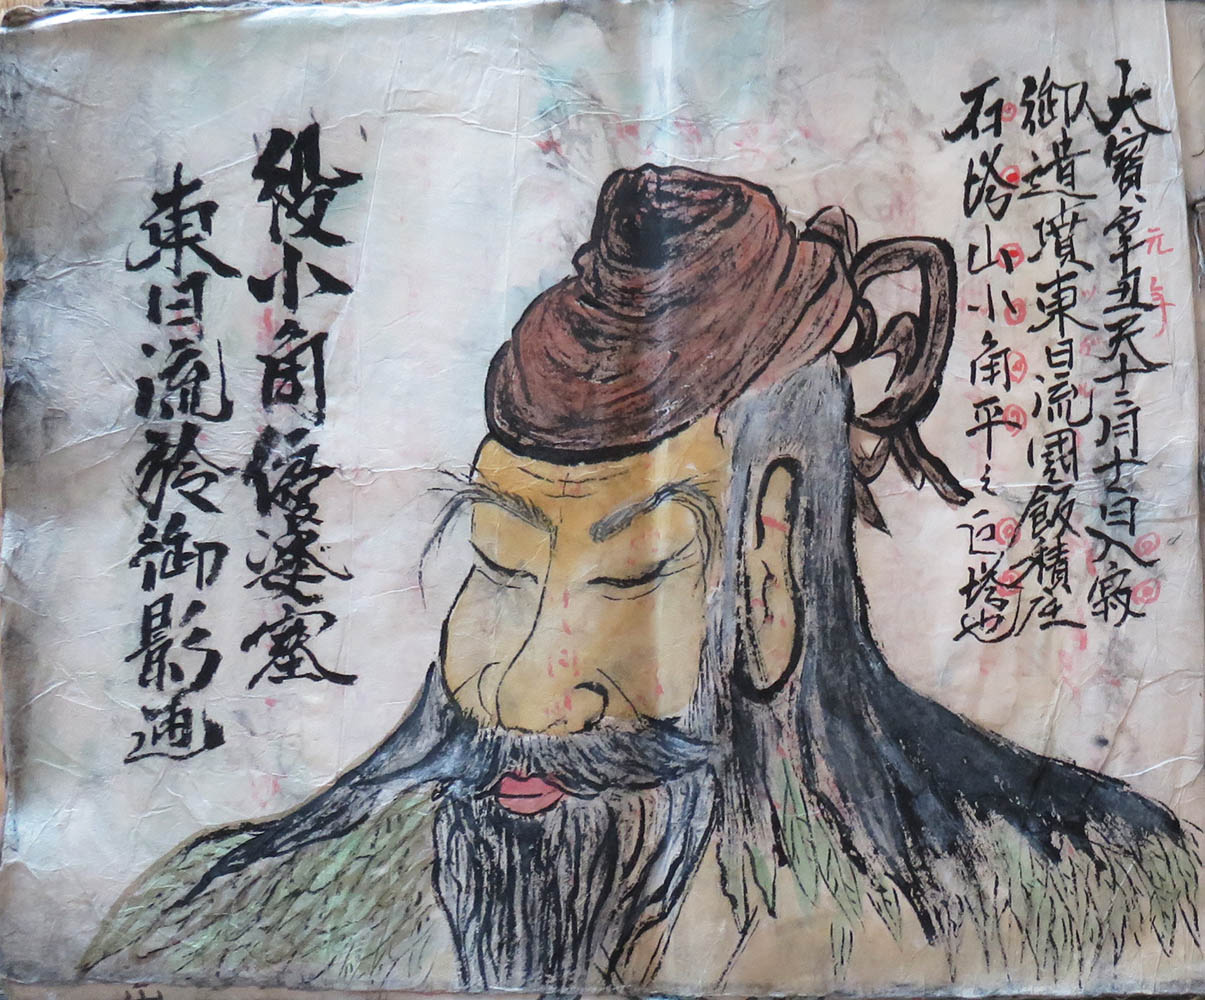 大寶辛丑天十二月十一日入寂
元年
御遺墳東日流國飯積庄
石塔山小角平之丘塔也
役小角優婆塞
東日流於御影画